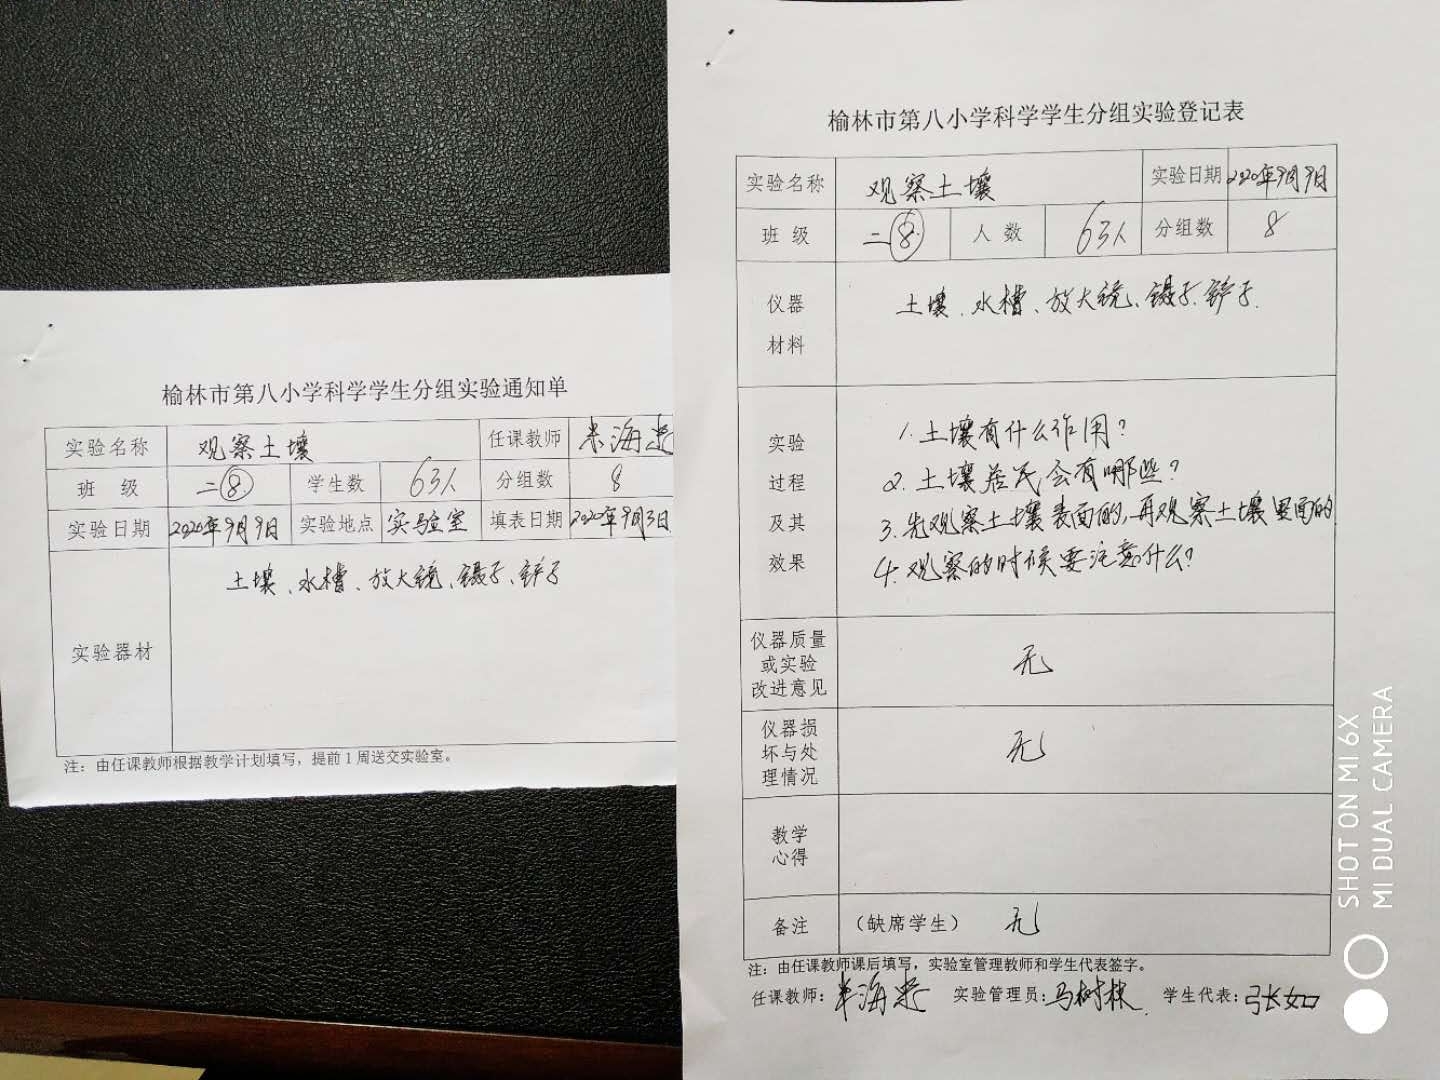 榆林市第八小学科学学生分组实验通知单
实验名称 观察土壤 任课教师 米海
班 级 二⑧ 学生数 63人 分组数 8
实验日期 2020年9月9日 实验地点 实验室 填表日期 2020年9月3日
实验器材 土壤、水槽、放大镜、镊子、铲子
注：由任课教师根据教学计划填写，提前1周送交实验室。
榆林市第八小学科学学生分组实验登记表
实验名称 观察土壤 实验日期 2020年9月9日
班 级 二⑧ 人 数 63人 分组数 8
仪器
材料
土壤、水槽、放大镜、镊子、铲子.
实验
过程
及其
效果
1. 土壤有什么作用？
2. 土壤居民会有哪些？
3. 先观察土壤表面的，再观察土壤里面的
4. 观察的时候要注意什么？
仪器质量
或实验
改进意见
无
仪器损
坏与处
理情况
无
教学
心得
备注 （缺席学生） 无
注：由任课教师课后填写，实验室管理教师和学生代表签字。
任课教师：米海 实验管理员：马树林 学生代表：张如
SHOT ON MI 6X
MI DUAL CAMERA